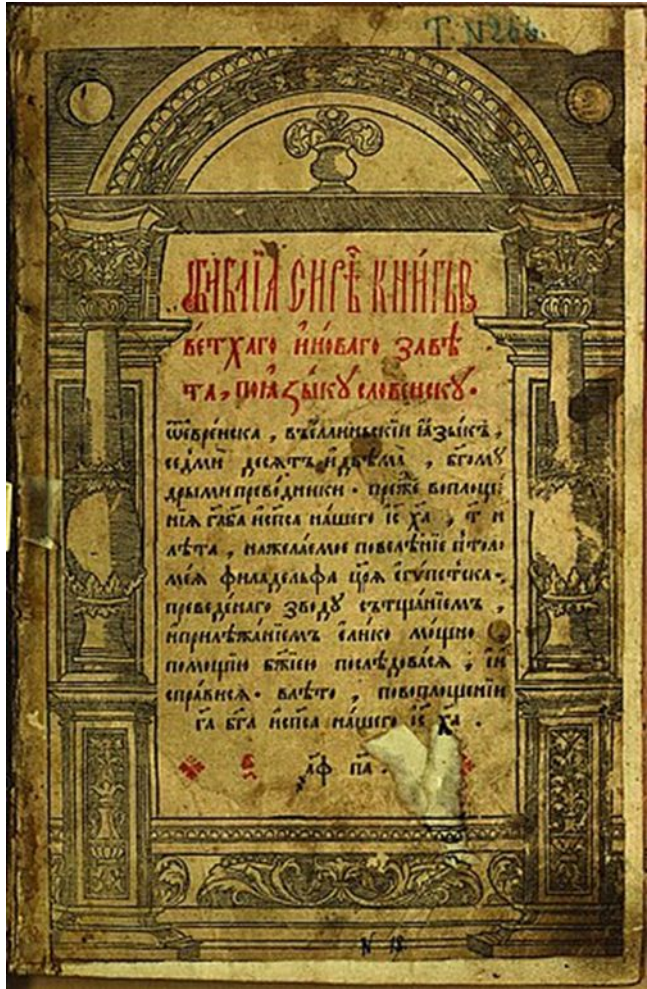 T. N 266.
БИБЛІА СИРѢ КНИГЫ
ВЕТХАГО И҆НОВАГО ЗАВѢ
ТА, ПОꙖЗЫКУ СЛОВЕНСКУ.
ѿєврє́нска, въє́ллиньскїи ꙗ҆зы́къ,
се́дмиꙿ десѧтъ и҆двѣма, бг҃омꙋ
дрыми прево́дники. пре́жє воплоще
нїѧ гⷭ҇а бг҃а и҆сп҃са на́шего іс҃ ха҃, т҃ и
лѣта, нажела́ємоє повелѣ́нїє птоло
ме́ѧ филаде́льфа цр҃ѧ єгѵ́петска,
преведе́наго зво́дꙋ сътща́нїємъ,
и҆прилѣжа́нїємъ є҆ли́ко мо́щно,
помо́щїю бж҃їєю послѣ́довасѧ, и҆
спра́висѧ. влѣ́то, повоплоще́нїи
га҃ бг҃а и҆сп҃са на́шего іс҃ ха҃.
҂аф па҃.
N 18